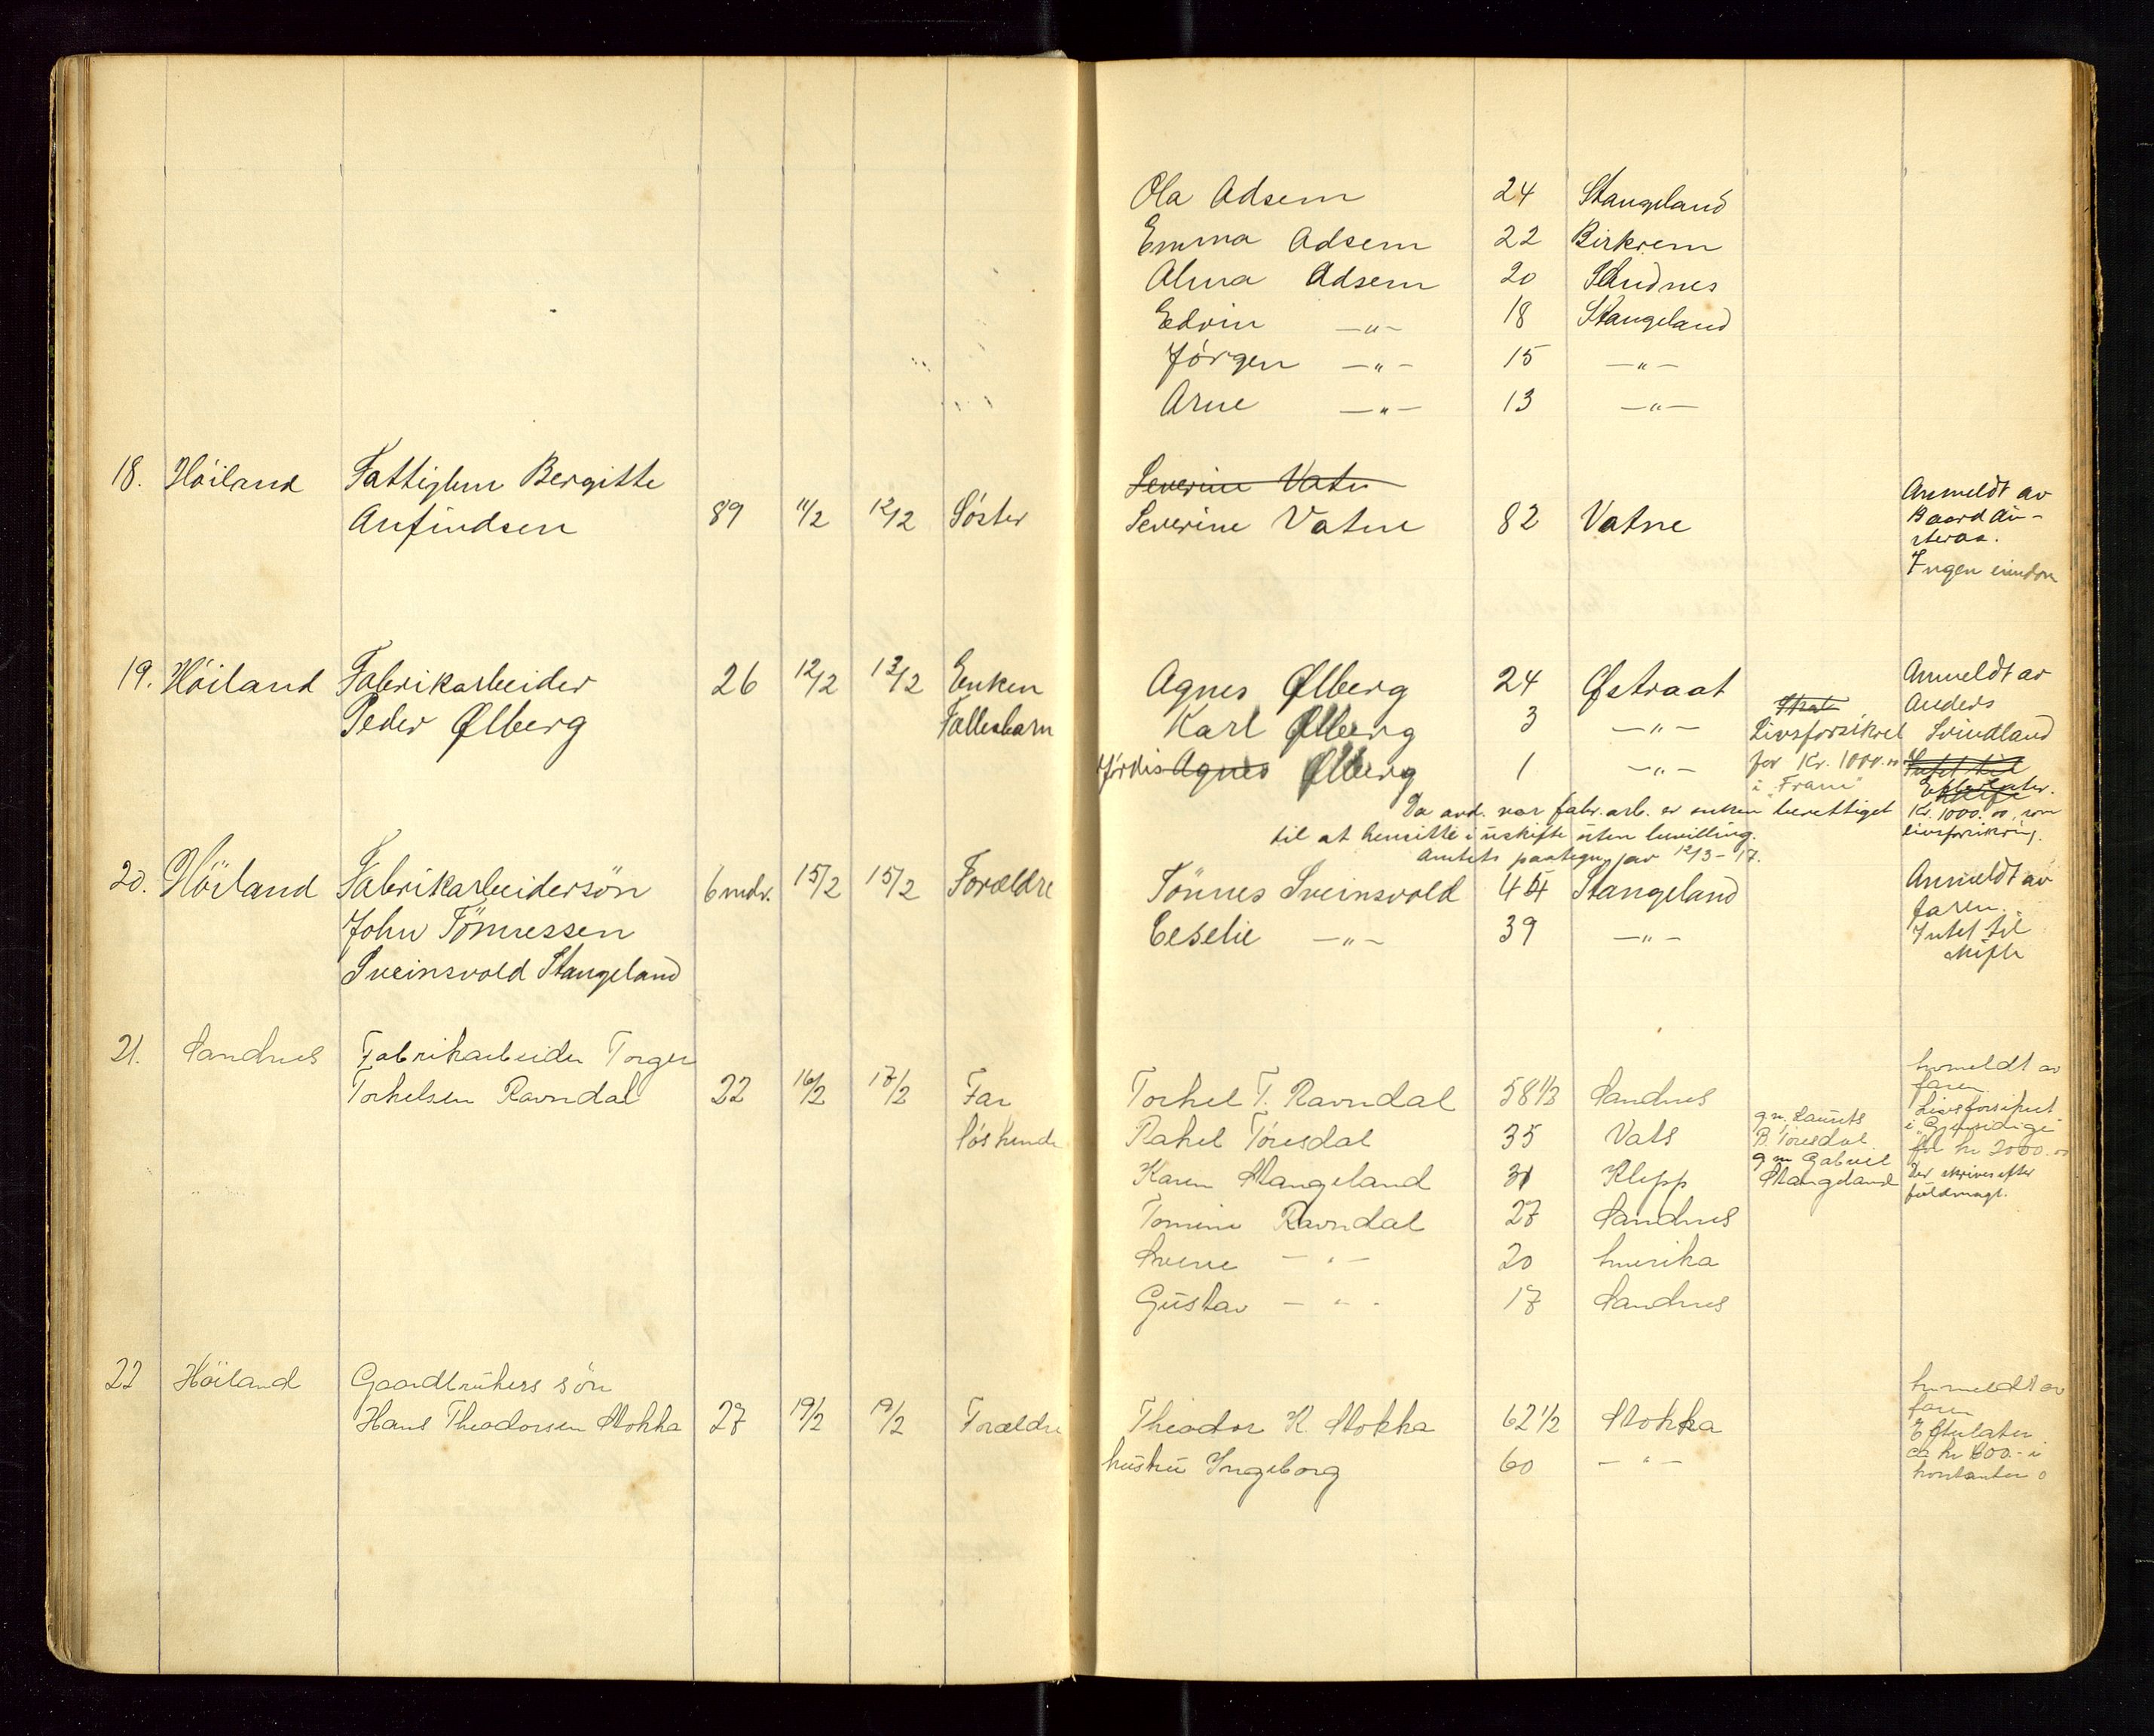 Ola Adsem 24 Stangeland
Emma Adsem 22 Birkrem
Alma Adsem 20 Sandnes
Edvin —„— 18 Stangeland
Jörgen —„— 15 —„—
Arne —„— 13 —„—
18. Höiland Fattiglem Bergitte Severine Vatn Anmeldt av
Anfindsen 89 11/2 12/2 Söster Severine Vatne 82 Vatne Baard Au-
steraa.
Ingen eiendom
19. Höiland Fabrikarbeider 26 12/2 13/2 Enken Agnes Ølberg 24 Østraat Anmeldt av
Peder Ølberg Fællesbarn Karl Ølberg 3 —„— Livsforsikret Anders Svindland
Hjördis Agnes Ølberg 1 —„— for Kr. 1000.00 Intet til skifte
i „Fram" Efterlater
Da avd. var fabr.arb. er enken berettiget Kr. 1000.00 som
til at hensitte i uskifte uten bevilling. livsforsikring.
Amtets paategn. av 12/3-17.
20. Höiland Fabrikarbeidersön 6 mdr. 15/2 15/2 Forældre Tönnes Sveinsvold 44 Stangeland Anmeldt av
John Tönnessen Ceselie —„— 39 —„— faren.
Sveinsvold Stangeland Intet til
skifte
21. Sandnes Fabrikarbeider Torger Anmeldt av
Torkelsen Ravndal 22 16/2 17/2 Far Torkel T. Ravndal 58 1/2 Sandnes faren
Söskende Rakel Töresdal 35 Vats g.m. Laurits B. Töresdal Livsforsikret i „Gjensidige"
Karen Stangeland 31 Klepp g.m. Gabriel Stangeland for kr 2000.00
Der skrives efter
fuldmagt.
Tomine Ravndal 27 Sandnes
Svene — „ — 20 Amerika
Gustav — „ - 17 Sandnes
22 Höiland Gaardbrukers sön Anmeldt av
Hans Theodorsen Stokka 27 19/2 19/2 Forældre Theodor K. Stokka 62 1/2 Stokka faren
hustru Ingeborg 60 — „ — Efterlater
ca kr 600.- i
kontanter